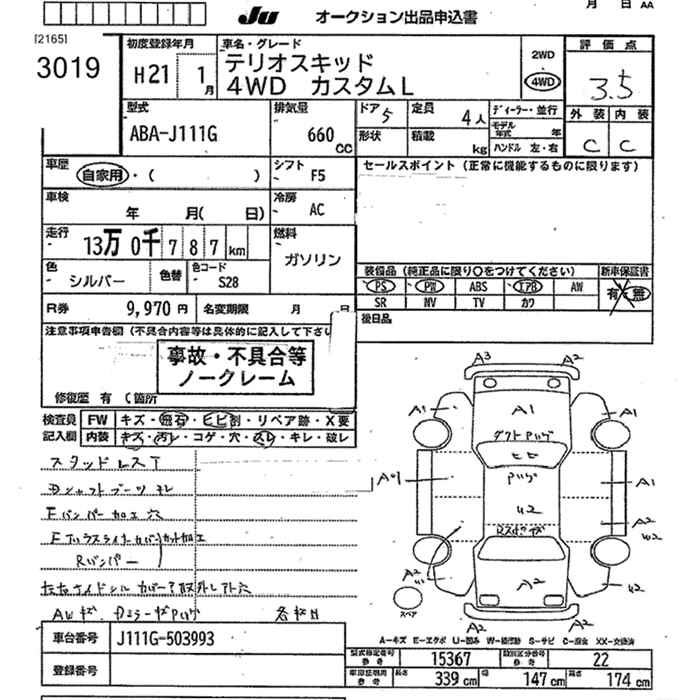 月 日 AA
JU オークション出品申込書
[2165]
3019
初度登録年月
H21 1月
車名・グレード
テリオスキッド
4WD カスタムL
2WD
4WD
評価点
3.5
外装 内装
C C
型式
ABA-J111G
排気量
660 CC
ドア 5
定員 4人
ディーラー・並行
形状
積載 kg
モデル年式 年
ハンドル 左・右
車歴
自家用・( )
シフト F5
セールスポイント (正常に機能するものに限ります)
車検
年 月( 日)
冷房 AC
走行
13万0千787km
燃料
ガソリン
色 シルバー
色替
色コード S28
装備品 (純正品に限り○をつけてください) 新車保証書
PS PW ABS エアB AW 有・無
SR NV TV カワ
R券 9,970円
名変期限 月 日
後日品
注意事項申告欄(不具合内容等は具体的に記入して下さい
事故・不具合等
ノークレーム
修復歴 有 (箇所
検査員 FW キズ・飛石・ヒビ割・リペア跡・X要
記入欄 内装 キズ・汚レ・コゲ・穴・スレ・キレ・破レ
スタッドレスT
Dシャフトブーツキレ
Fバンパー加工穴
Rバンパー
A3 A2
A1 A1 A1
A1
A2
W2
A2 A2
A2 A2
スペア
A-キズ E-エクボ U-凹み W-補修跡 S-サビ C-腐食 XX-交換済
車台番号 J111G-503993
登録番号
型式指定番号 参考 15367
類別区分番号 参考 22
車庫証明用 参考 長さ 339 cm 幅 147 cm 高さ 174 cm